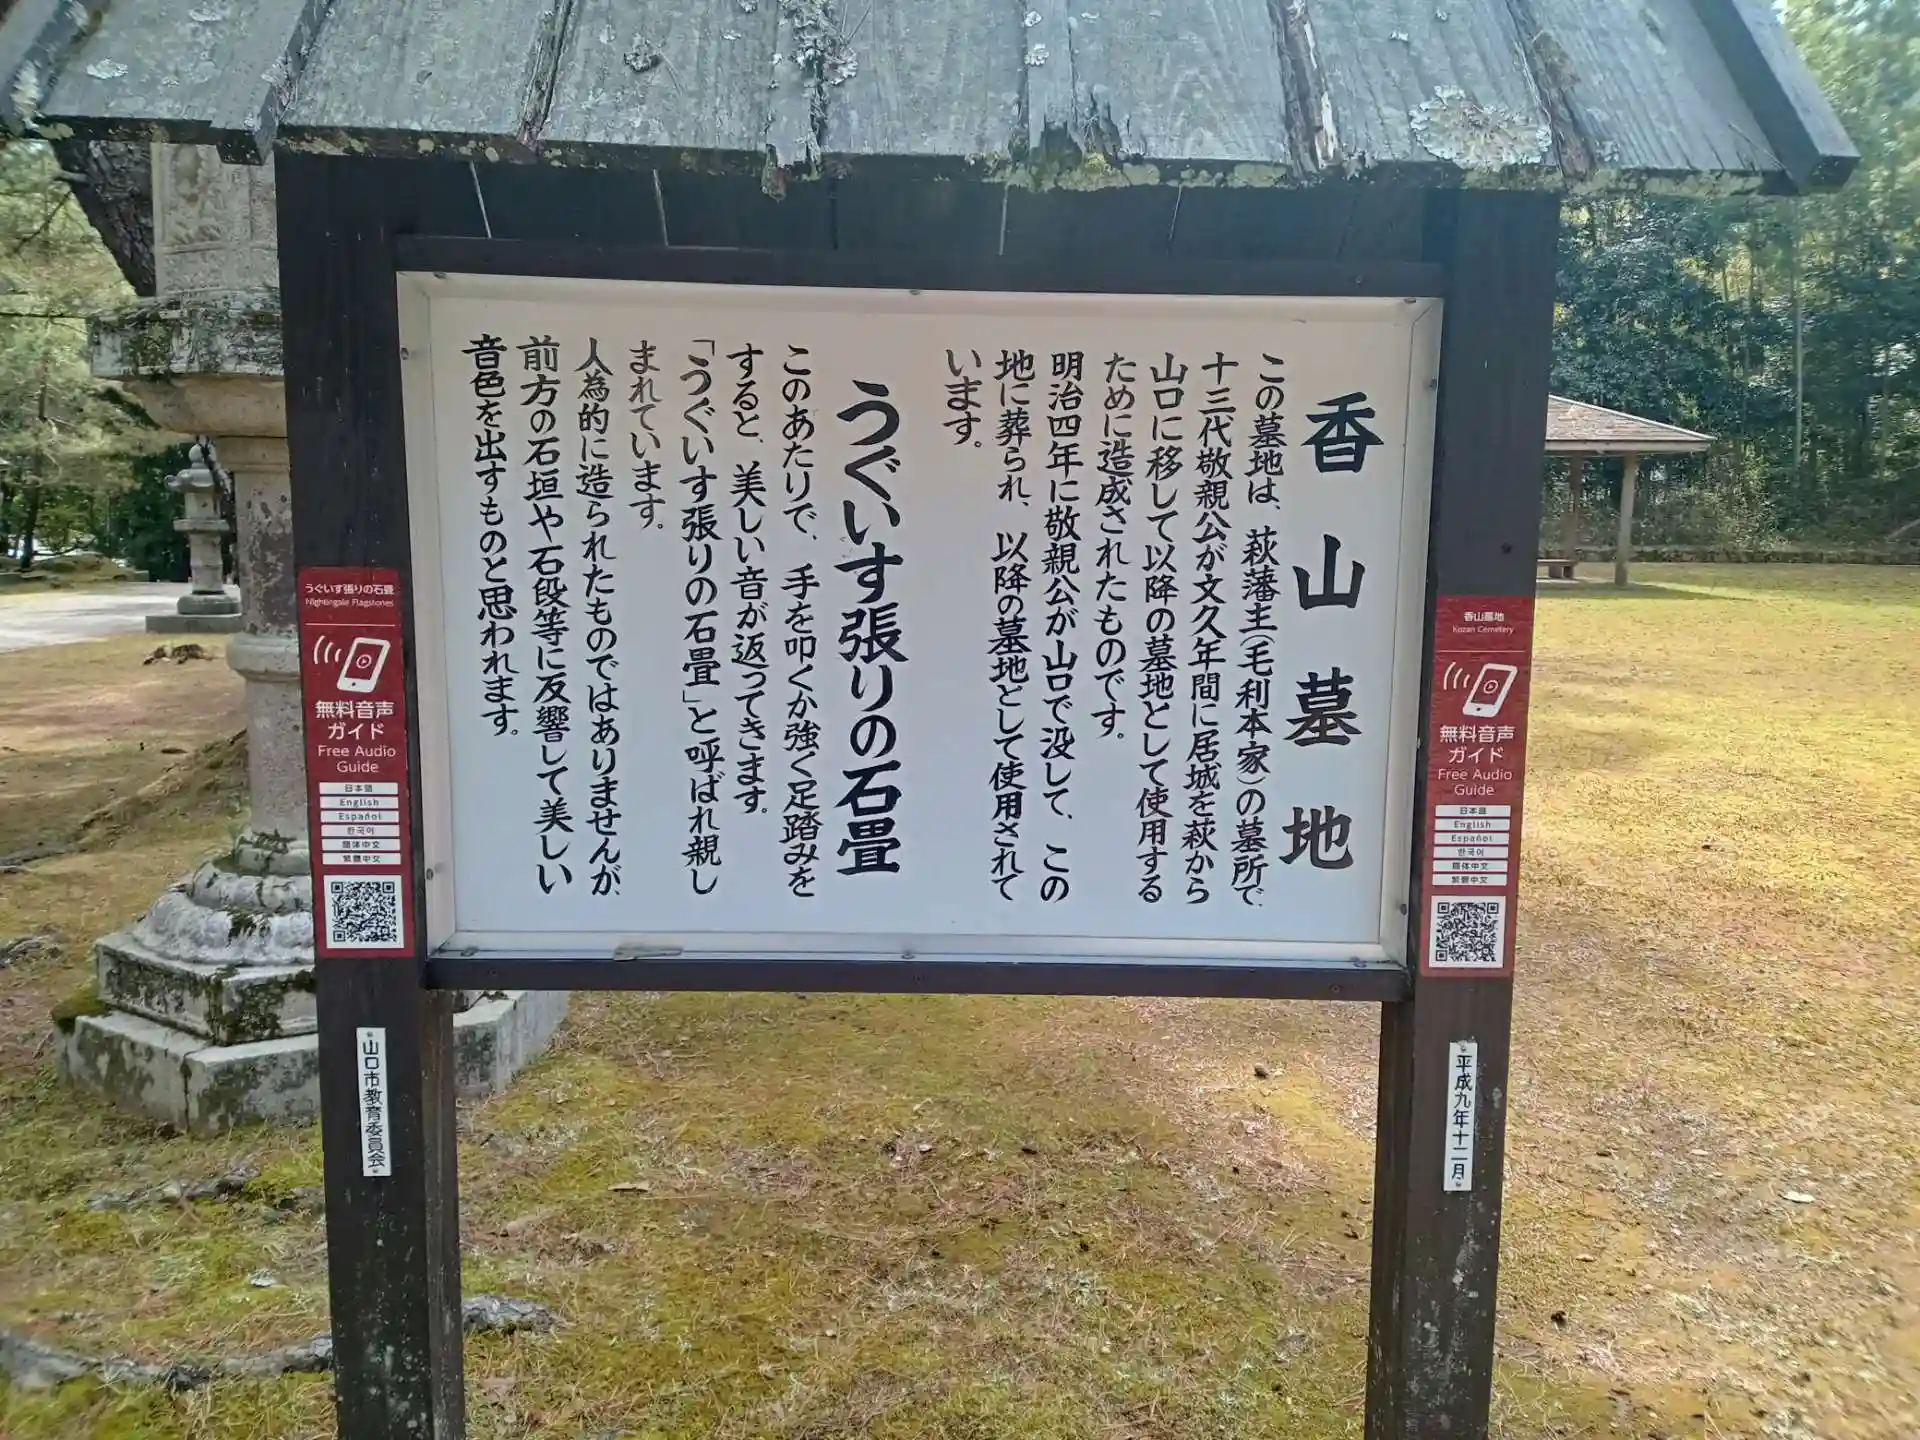 香山墓地
この墓地は、萩藩主(毛利本家)の墓所で、
十三代敬親公が文久年間に居城を萩から
山口に移して以降の墓地として使用する
ために造成されたものです。
明治四年に敬親公が山口で没して、この
地に葬られ、以降の墓地として使用されて
います。
うぐいす張りの石畳
このあたりで、手を叩くか強く足踏みを
すると、美しい音が返ってきます。
「うぐいす張りの石畳」と呼ばれ親し
まれています。
人為的に造られたものではありませんが、
前方の石垣や石段等に反響して美しい
音色を出すものと思われます。
香山墓地
Kozan Cemetery
無料音声
ガイド
Free Audio
Guide
日本語
English
Español
한국어
简体中文
繁體中文
平成九年十二月
うぐいす張りの石畳
Nightingale Flagstones
無料音声
ガイド
Free Audio
Guide
日本語
English
Español
한국어
简体中文
繁體中文
山口市教育委員会